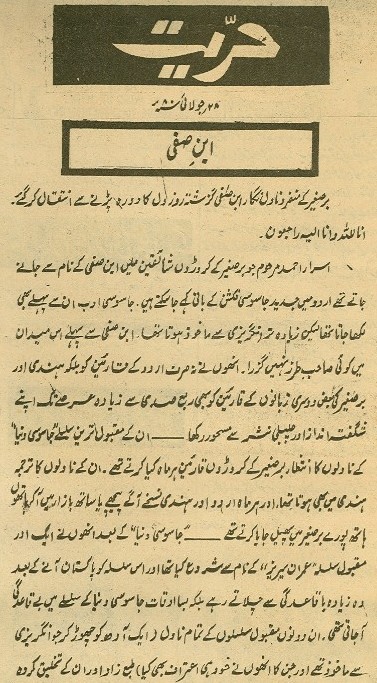 حریت
۲۸ جولائی ۸۰ء
ابنِ صفی
برصغیر کے منفرد ناول نگار ابن صفی گزشتہ روز دل کا دورہ پڑنے سے انتقال کر گئے۔
انا للہ وانا الیہ راجعون۔
اسرار احمد مرحوم جو برصغیر کے کروڑوں شائقین میں ابن صفی کے نام سے جانے
جاتے تھے اردو میں جدید جاسوسی فکشن کے بانی کہے جا سکتے ہیں۔ جاسوسی ادب ان سے پہلے بھی
لکھا جاتا تھا لیکن زیادہ تر انگریزی سے ماخوذ ہوتا تھا۔ ابن صفی سے پہلے اس میدان
میں کوئی صاحب طرز نہیں گزرا۔ انھوں نے نہ صرف اردو کے قارئین کو بلکہ ہندی اور
برصغیر کی بعض دوسری زبانوں کے قارئین کو بھی ربع صدی سے زیادہ عرصے تک اپنے
شگفتہ انداز اور چلبلی نثر سے مسحور رکھا ——— ان کے مقبول ترین سلسلے "جاسوسی دنیا"
کے ناولوں کا انتظار برصغیر کے کروڑوں قارئین ہر ماہ کیا کرتے تھے۔ ان کے ناولوں کا ترجمہ
ہندی میں بھی ہوتا تھا، اور ہر ماہ اردو اور ہندی نسخے آگے پیچھے یا ساتھ بازار میں آ کر ہاتھوں
ہاتھ پورے برصغیر میں پھیل جایا کرتے تھے ——— "جاسوسی دنیا" کے بعد انھوں نے ایک اور
مقبول سلسلہ "عمران سیریز" کے نام سے شروع کیا تھا اور اس سلسلہ کو پاکستان آنے کے بعد
وہ زیادہ باقاعدگی سے چلاتے رہے بلکہ بسا اوقات جاسوسی دنیا کے سلسلے میں بے قاعدگی
آ جاتی تھی۔ ان دونوں مقبول سلسلوں کے تمام ناول (ایک آدھ کو چھوڑ کر جو انگریزی
سے ماخوذ تھے اور جن کا انھوں نے خود ہی اعتراف بھی کیا) طبع زاد اور ان کے تخلیق کردہ